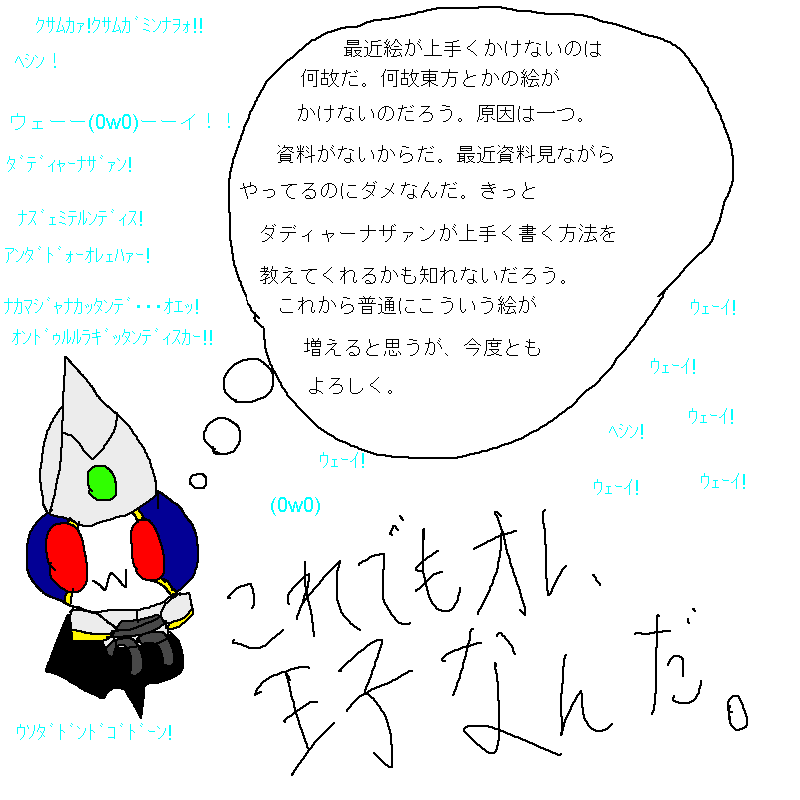 ｸｻﾑｶｧ!ｸｻﾑｶﾞﾐﾝﾅｦｫ!!
ﾍｼﾝ！
ウェーー(0w0)ーーイ！！
ﾀﾞﾃﾞｨｬｰﾅｻﾞｧﾝ!
ﾅｽﾞｪﾐﾃﾙﾝﾃﾞｨｽ!
ｱﾝﾀﾞﾄﾞｫｰｵﾚｪﾊｧｰ!
ﾅｶﾏｼﾞｬﾅｶｯﾀﾝﾃﾞ･･･ｵｴｯ!
ｵﾝﾄﾞｩﾙﾙﾗｷﾞｯﾀﾝﾃﾞｨｽｶｰ!!
最近絵が上手くかけないのは
何故だ。何故東方とかの絵が
かけないのだろう。原因は一つ。
資料がないからだ。最近資料見ながら
やってるのにダメなんだ。きっと
ダディャーナザァンが上手く書く方法を
教えてくれるかも知れないだろう。
これから普通にこういう絵が
増えると思うが、今度とも
よろしく。
ｳｪｰｲ!
ｳｪｰｲ!
ｳｪｰｲ!
ﾍｼﾝ!
ｳｪｰｲ!
ｳｪｰｲ!
ｳｪｰｲ!
(0w0)
これでもオレ、
王子なんだ。
ｳｿﾀﾞﾄﾞﾝﾄﾞｺﾞﾄﾞｰﾝ!